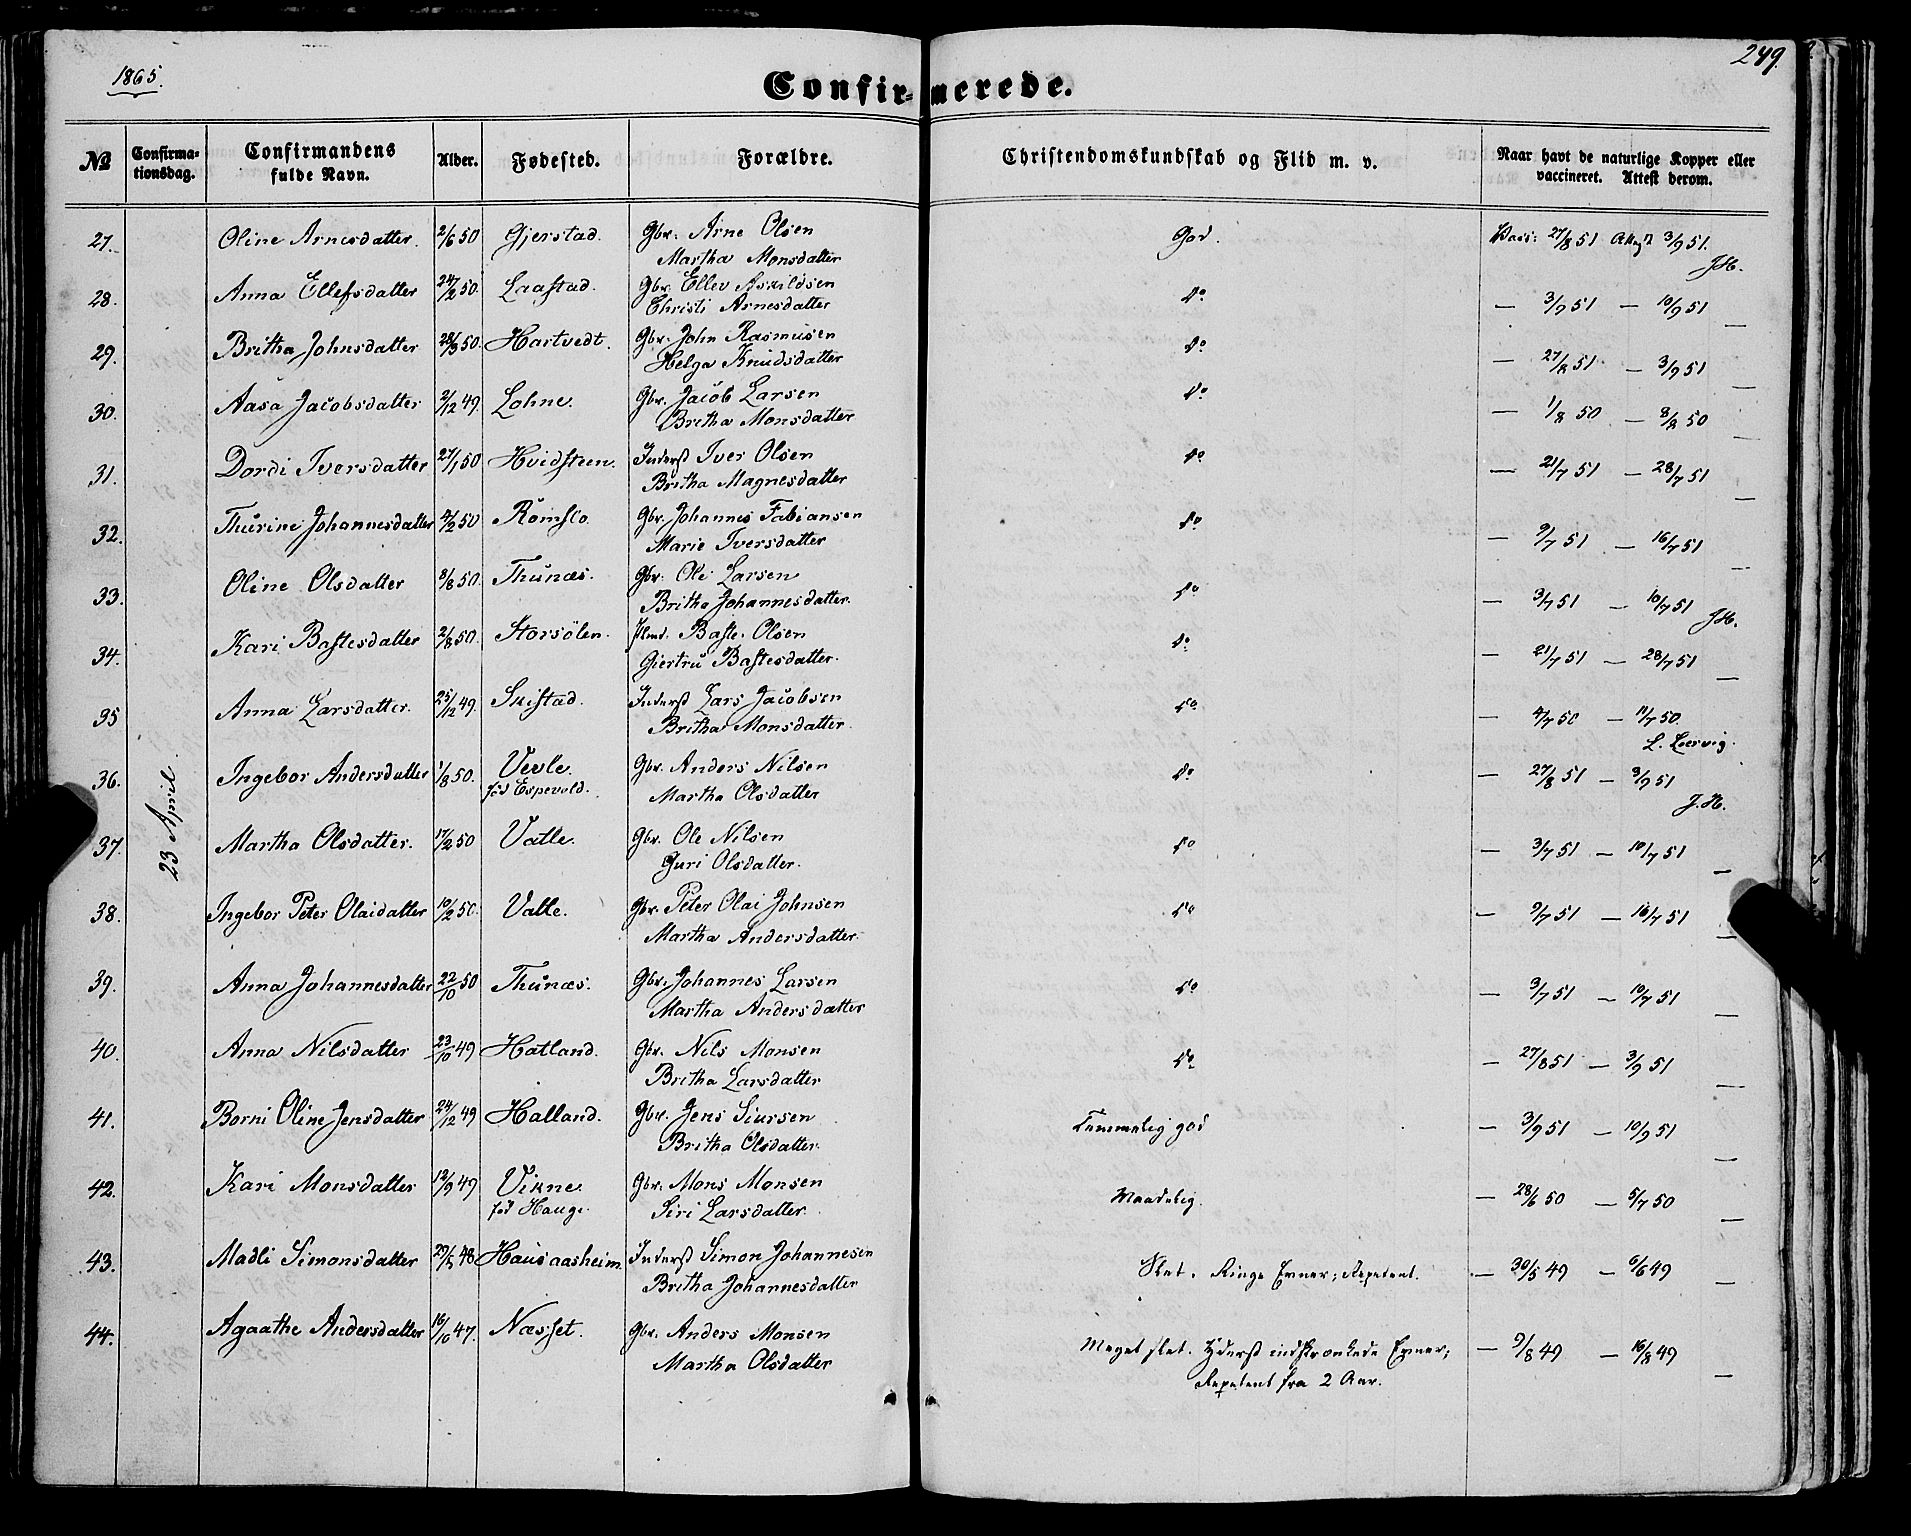 1865.
249.
Confirmerede.
№ Confirmationsdag. Confirmandens fulde Navn. Alder. Fødested. Forældre. Christendomskundskab og Flid m. v. Naar havt de naturlige Kopper eller vaccineret. Attest derom.
23 April.
27. Oline Arnesdatter. 2/6 50 Gjerstad. Gbr. Arne Olsen God. Vacc: 27/8 51 Attest 3/9 51.
Martha Monsdatter J.H.
28. Anna Ellefsdatter 24/2 50. Laastad. Gbr. Ellev Askildsen do — 3/9 51 — 10/9 51
Christi Arnesdatter —
29. Britha Johnsdatter 28/3 50. Hartvedt. Gbr. John Rasmusen do — 27/8 51 — 3/9 51
Helga Knudsdatter —
30. Aasa Jacobsdatter 2/12 49. Lohne. Gbr. Jacob Larsen do — 1/8 50 — 8/8 50
Britha Monsdatter —
31. Dordi Iversdatter 27/1 50 Hvidsteen. Inderst Iver Olsen do — 21/7 51 — 28/7 51
Britha Magnesdatter —
32. Thurine Johannesdatter 4/2 50 Romslo. Gbr. Johannes Fabiansen do — 9/7 51 — 16/7 51
Marie Iversdatter —
33. Oline Olsdatter 8/8 50. Thunæs. Gbr. Ole Larsen do — 3/7 51 — 10/7 51
Britha Johannesdatter. J.H.
34. Kari Bastesdatter 2/8 50. Storsölen. Baste Olsen do — 21/7 51 — 28/7 51
Giertru Bastesdatter. —
35 Anna Larsdatter. 25/12 49. Skistad. Inderst Lars Jacobsen do — 4/7 50 — 11/7 50.
Britha Monsdatter. L. Leervig.
36. Ingebor Andersdatter 1/8 50. Vevle. Gbr. Anders Nilsen do — 27/8 51 — 3/9 51
fød Espevold. Martha Olsdatter J.H.
37. Martha Olsdatter. 17/2 50 Vatle. Gbr. Ole Nilsen do — 3/7 51 — 10/7 51
Guri Olsdatter. —
38. Ingebor Peter Olaidatter 10/2 50. Vatle. Gbr. Peter Olai Johnsen do — 9/7 51 — 16/7 51
Martha Andersdatter. —
39. Anna Johannesdatter 22/10 50 Thunæs. Gbr. Johannes Larsen do — 3/7 51 — 10/7 51
Martha Andersdatter —
40. Anna Nilsdatter 23/10 49 Hatland. Gbr. Nils Monsen do — 27/8 51 — 3/9 51
Britha Larsdatter —
41. Borni Oline Jensdatter 24/12 49 Halland. Gbr. Jens Siursen Temmelig god — 3/9 51 — 10/9 51
Britha Olsdatter. —
42. Kari Monsdatter 12/9 49 Vikne. Gbr. Mons Monsen Maadelig. — 28/6 50 — 5/7 50
fød Hauge. Siri Larsdatter. —
43. Madli Simonsdatter 29/5 48 Hausaasheim. Inderst Simon Johannesen Slet. Ringe Evner; Repetent. — 30/5 49 — 6/6 49
Britha Johannesdatter —
44. Agaathe Andersdatter 16/10 47. Næsset. Gbr. Anders Monsen Meget slet. Yderst indskrænkede Evner; — 9/8 49 — 16/8 49
Martha Olsdatter Repetent fra 2 Aar. —